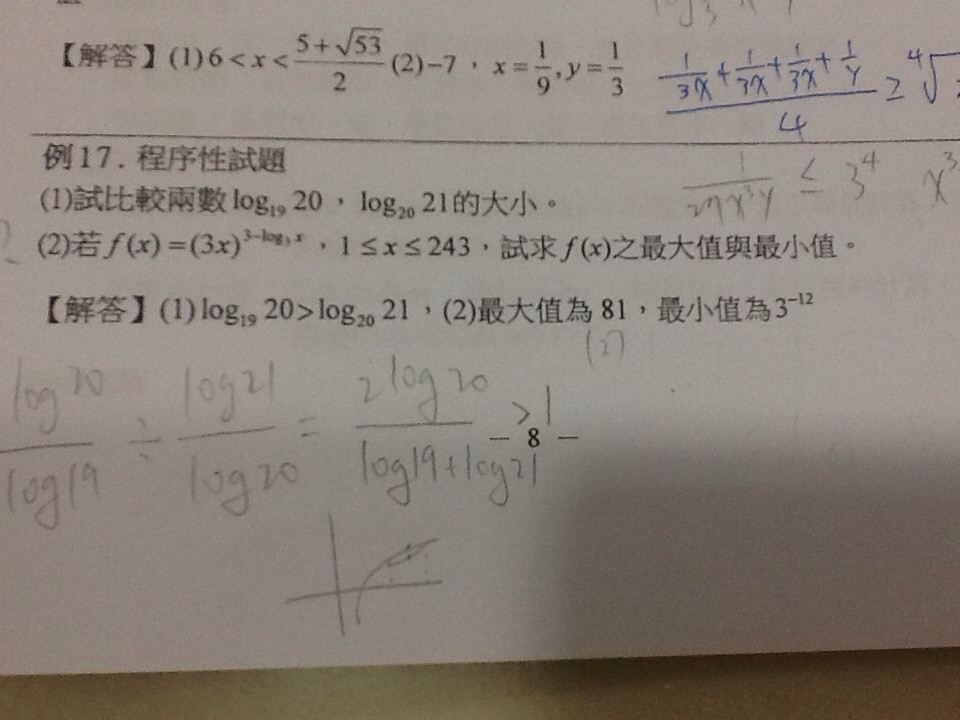 【解答】(1) 6 < x < \frac{5+\sqrt{53}}{2} (2) −7，x = \frac{1}{9}, y = \frac{1}{3}
\frac{\frac{1}{3x}+\frac{1}{3x}+\frac{1}{3x}+\frac{1}{y}}{4} ≥ ⁴√
例17. 程序性試題
\frac{1}{27x³y} ≤ 3⁴ x³
(1)試比較兩數 log₁₉ 20，log₂₀ 21的大小。
(2)若 f(x) = (3x)^{3−log₃ x}，1 ≤ x ≤ 243，試求 f(x)之最大值與最小值。
【解答】(1) log₁₉ 20 > log₂₀ 21，(2)最大值為 81，最小值為3⁻¹²
(2)
\frac{log 20}{log 19} ÷ \frac{log 21}{log 20} = \frac{2 log 20}{log 19 + log 21} > 1
− 8 −